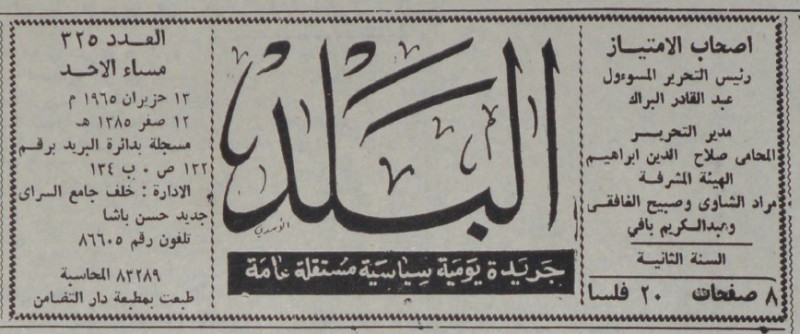 اصحاب الامتياز
رئيس التحرير المسوءول
عبد القادر البراك
مدير التحرير
المحامى صلاح الدين ابراهيم
الهيئة المشرفة
مراد الشاوى وصبيح الغافقى
وعبدالكريم بافي
السنة الثانية
٨ صفحات ٢٠ فلسا
البلد
جريدة يومية سياسية مستقلة عامة
العدد ٣٢٥
مساء الاحد
١٣ حزيران ١٩٦٥ م
١٢ صفر ١٣٨٥ هـ
مسجلة بدائرة البريد برقم
١٢٢ ص ٠ ب ١٣٤
الادارة : خلف جامع السراى
جديد حسن باشا
تلفون رقم ٨٦٦٠٥
٨٣٢٨٩ المحاسبة
طبعت بمطبعة دار التضامن